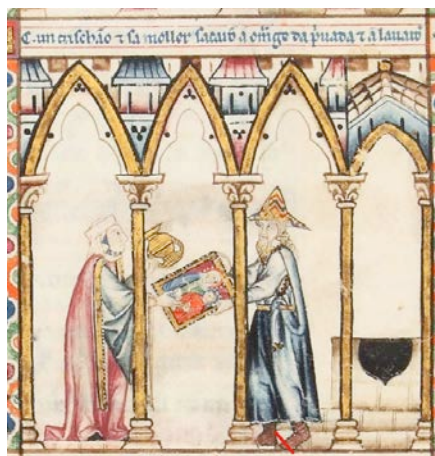 C. un crischão ⁊ sa moller sacarõ a om̃ge da p̃uada ⁊ a lauarõ